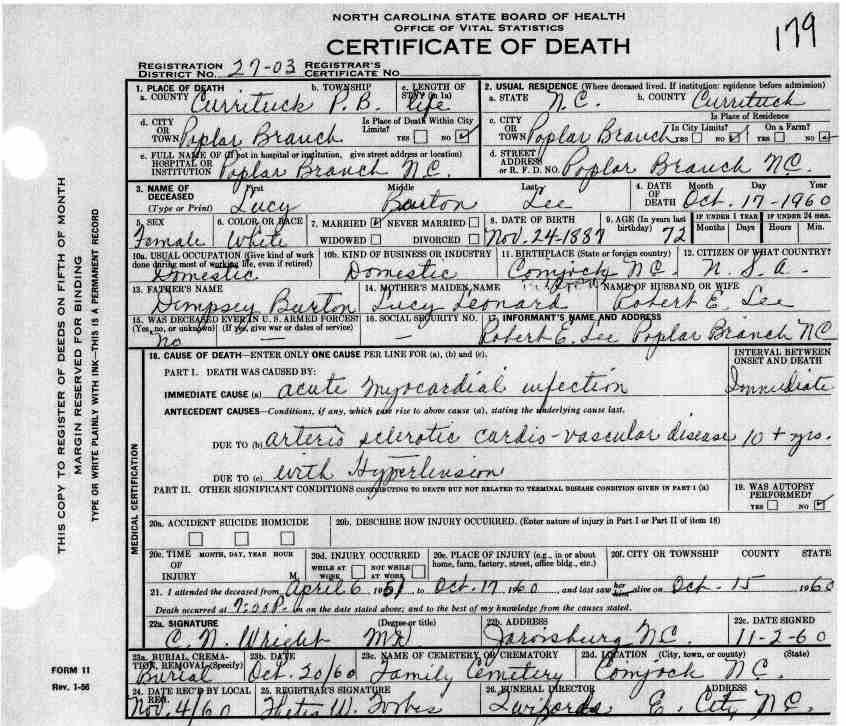 NORTH CAROLINA STATE BOARD OF HEALTH
OFFICE OF VITAL STATISTICS
CERTIFICATE OF DEATH
179
REGISTRATION DISTRICT NO. 27-03 REGISTRAR'S CERTIFICATE NO.
1. PLACE OF DEATH
a. COUNTY Currituck b. TOWNSHIP P.B. c. LENGTH OF STAY (in 1a) life
2. USUAL RESIDENCE (Where deceased lived. If institution: residence before admission)
a. STATE N.C. b. COUNTY Currituck
d. CITY OR TOWN Poplar Branch Is Place of Death Within City Limits? YES NO
c. CITY OR TOWN Poplar Branch Is Place of Residence In City Limits? YES NO On a Farm? YES NO
e. FULL NAME OF (If not in hospital or institution, give street address or location) HOSPITAL OR INSTITUTION Poplar Branch N.C.
d. STREET ADDRESS or R. F. D. NO. Poplar Branch NC
3. NAME OF DECEASED (Type or Print) First Lucy Middle Barton Last Lee
4. DATE OF DEATH Month Day Year Oct. 17-1960
5. SEX Female 6. COLOR OR RACE White 7. MARRIED NEVER MARRIED WIDOWED DIVORCED
8. DATE OF BIRTH Nov. 24-1887 9. AGE (In years last birthday) 72 IF UNDER 1 YEAR Months Days IF UNDER 24 HRS. Hours Min.
10a. USUAL OCCUPATION (Give kind of work done during most of working life, even if retired) Domestic
10b. KIND OF BUSINESS OR INDUSTRY Domestic
11. BIRTHPLACE (State or foreign country) Comjock N.C.
12. CITIZEN OF WHAT COUNTRY? U.S.A.
13. FATHER'S NAME Dempsey Barton
14. MOTHER'S MAIDEN NAME Lucy Leonard
NAME OF HUSBAND OR WIFE Robert E. Lee
15. WAS DECEASED EVER IN U. S. ARMED FORCES? (Yes, no, or unknown) (If yes, give war or dates of service) No —
16. SOCIAL SECURITY NO. —
17. INFORMANT'S NAME AND ADDRESS Robert E. Lee Poplar Branch NC
18. CAUSE OF DEATH—ENTER ONLY ONE CAUSE PER LINE FOR (a), (b) and (c).
INTERVAL BETWEEN ONSET AND DEATH
PART I. DEATH WAS CAUSED BY:
IMMEDIATE CAUSE (a) acute myocardial infection Immediate
ANTECEDENT CAUSES—Conditions, if any, which gave rise to above cause (a), stating the underlying cause last.
DUE TO (b) arterio sclerotic cardio-vascular disease 10 + yrs.
DUE TO (c) with Hypertension
PART II. OTHER SIGNIFICANT CONDITIONS CONTRIBUTING TO DEATH BUT NOT RELATED TO TERMINAL DISEASE CONDITION GIVEN IN PART I (a)
19. WAS AUTOPSY PERFORMED? YES NO
20a. ACCIDENT SUICIDE HOMICIDE
20b. DESCRIBE HOW INJURY OCCURRED. (Enter nature of injury in Part I or Part II of item 18)
20c. TIME OF INJURY MONTH, DAY, YEAR HOUR M.
20d. INJURY OCCURRED WHILE AT WORK NOT WHILE AT WORK
20e. PLACE OF INJURY (e.g., in or about home, farm, factory, street, office bldg., etc.)
20f. CITY OR TOWNSHIP COUNTY STATE
21. I attended the deceased from April 6 1951 to Oct. 17 1960, and last saw her alive on Oct. 15 1960
Death occurred at m on the date stated above; and to the best of my knowledge from the causes stated.
22a. SIGNATURE (Degree or title) C. N. Wright MD
22b. ADDRESS Jarvisburg NC.
22c. DATE SIGNED 11-2-60
23a. BURIAL, CREMATION, REMOVAL (Specify) Burial
23b. DATE Oct. 20/60
23c. NAME OF CEMETERY OR CREMATORY Family Cemetery
23d. LOCATION (City, town, or county) (State) Comjock NC.
24. DATE REC'D BY LOCAL REG. Nov. 4/60
25. REGISTRAR'S SIGNATURE W. Forbes
26. FUNERAL DIRECTOR ADDRESS E. City N.C.
MEDICAL CERTIFICATION
THIS COPY TO REGISTER OF DEEDS ON FIFTH OF MONTH
MARGIN RESERVED FOR BINDING
TYPE OR WRITE PLAINLY WITH INK—THIS IS A PERMANENT RECORD
FORM 11
Rev. 1-56